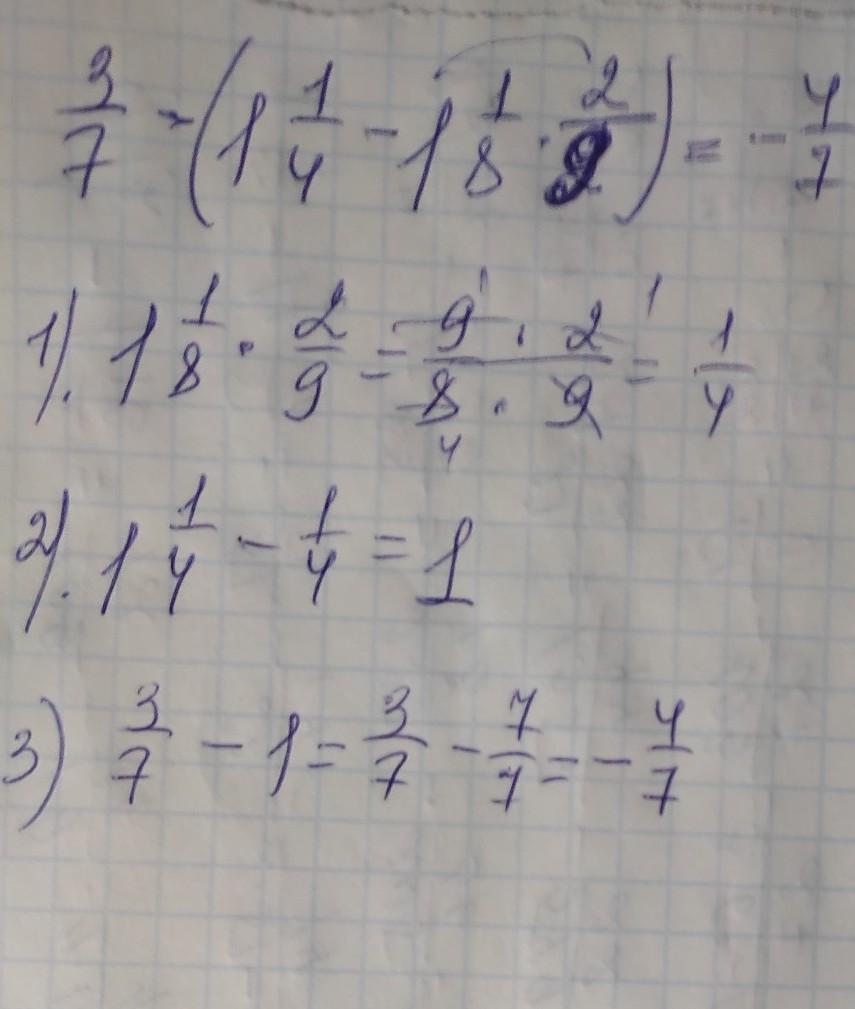 3/7 - (1 1/4 - 1 1/8 · 2/9) = - 4/7
1). 1 1/8 · 2/9 = 9 · 2 / 8 · 9 = 1/4
2). 1 1/4 - 1/4 = 1
3) 3/7 - 1 = 3/7 - 7/7 = - 4/7